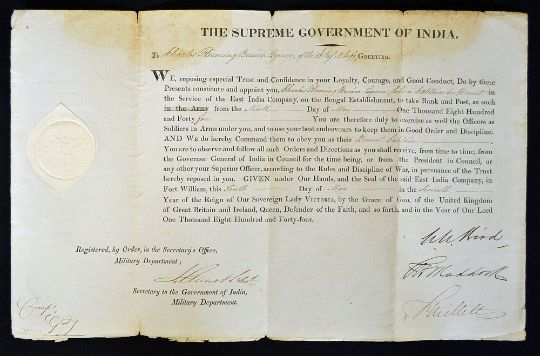 THE SUPREME GOVERNMENT OF INDIA.
To Charles Esquire, of the GREETING.
WE, reposing especial Trust and Confidence in your Loyalty, Courage, and Good Conduct, Do by these
Presents constitute and appoint you, Charles Esquire to be Captain by Brevet in
the Service of the East India Company, on the Bengal Establishment, to take Rank and Post, as such
in the Army from the Ninth Day of May One Thousand Eight Hundred
and Forty four You are therefore duly to exercise as well the Officers as
Soldiers in Arms under you, and to use your best endeavours to keep them in Good Order and Discipline.
AND WE do hereby Command them to obey you as their Brevet Captain
You are to observe and follow all such Orders and Directions as you shall receive, from time to time, from
the Governor General of India in Council for the time being, or from the President in Council, or
any other your Superior Officer, according to the Rules and Discipline of War, in pursuance of the Trust
hereby reposed in you. GIVEN under Our Hands, and the Seal of the said East India Company, in
Fort William, this Day of May in the Seventh
Year of the Reign of Our Sovereign Lady VICTORIA, by the Grace of GOD, of the United Kingdom
of Great Britain and Ireland, Queen, Defender of the Faith, and so forth, and in the Year of Our Lord
One Thousand Eight Hundred and Forty-four.
W W Bird
Registered, by Order, in the Secretary's Office,
Military Department;
T H Maddock
Secretary to the Government of India,
Military Department.
F Millett